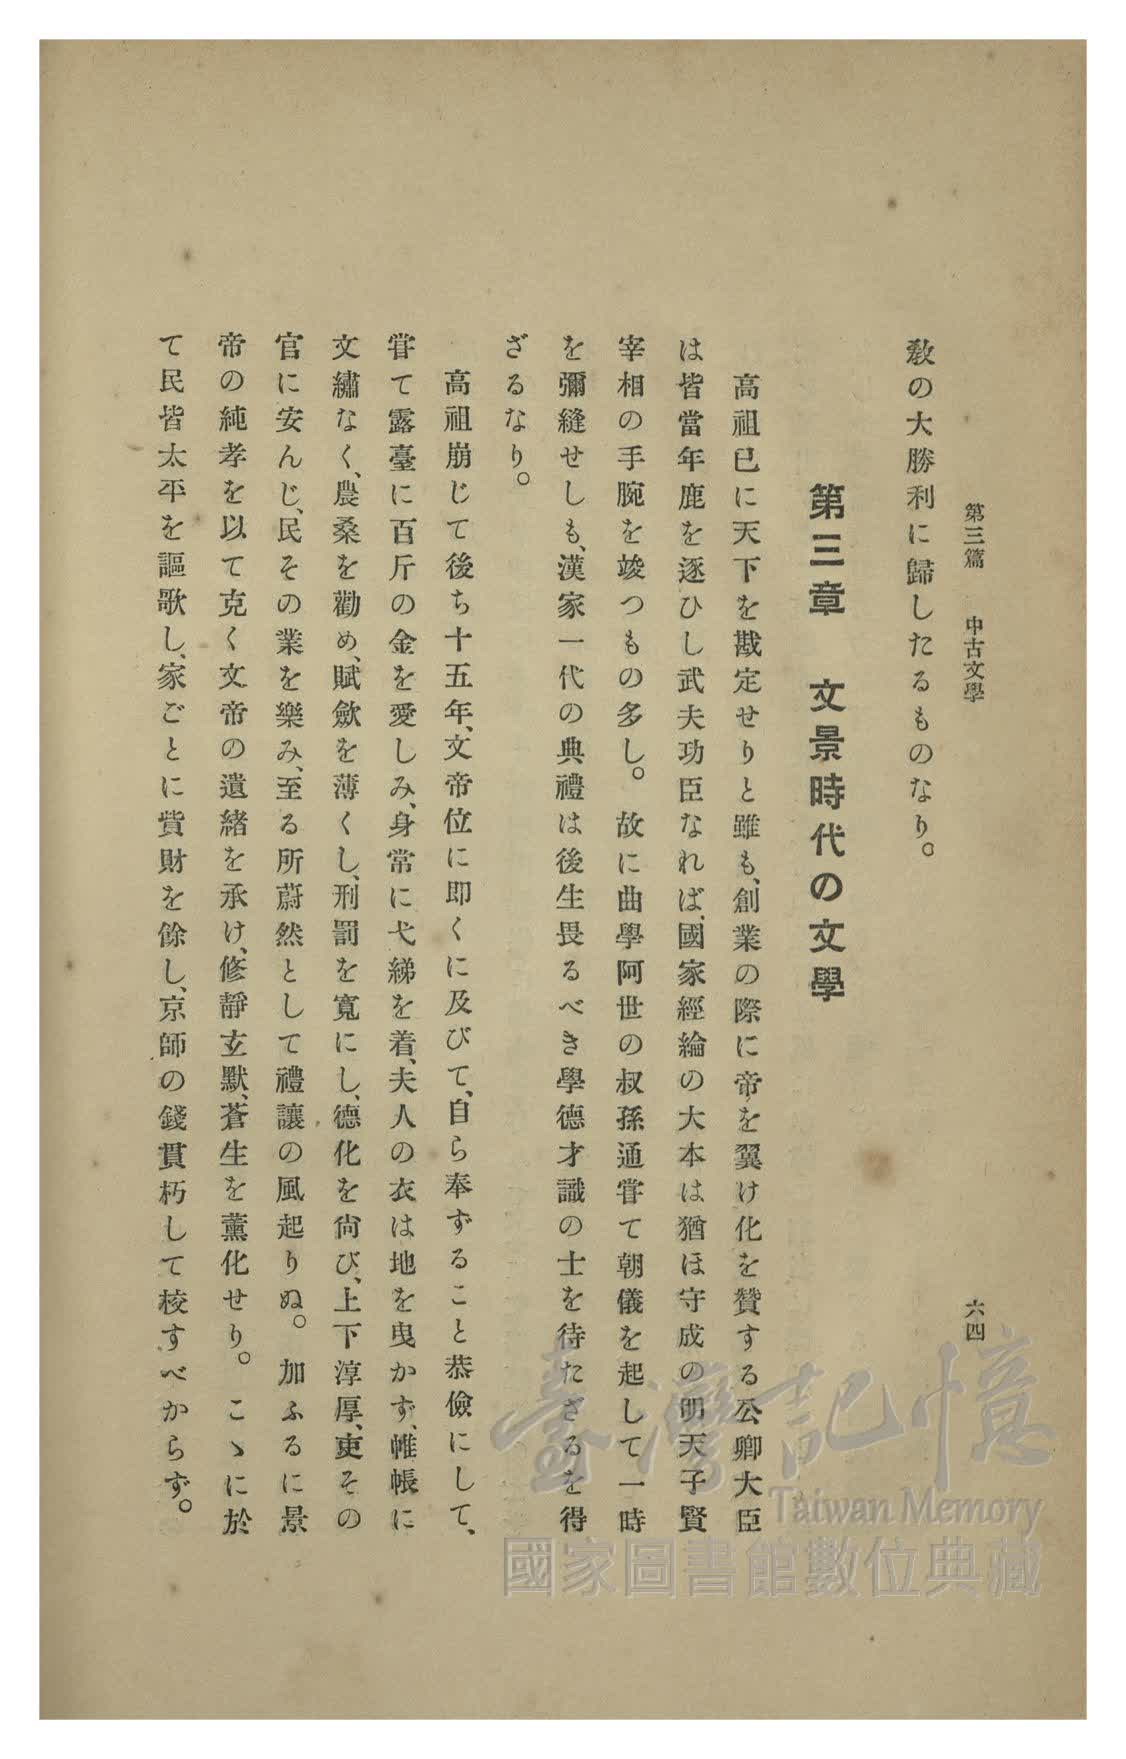 第三篇　中古文學　六四
敎の大勝利に歸したるものなり。
第三章　文景時代の文學
高祖已に天下を戡定せりと雖も、創業の際に帝を翼け化を贊する公卿大臣
は皆當年鹿を逐ひし武夫功臣なれば、國家經綸の大本は猶ほ守成の明天子賢
宰相の手腕を竢つもの多し。故に曲學阿世の叔孫通甞て朝儀を起して一時
を彌縫せしも、漢家一代の典禮は後生畏るべき學德才識の士を待たざるを得
ざるなり。
高祖崩じて後ち十五年、文帝位に即くに及びて、自ら奉ずること恭儉にして、
甞て露臺に百斤の金を愛しみ、身常に弋綈を着、夫人の衣は地を曳かず、帷帳に
文繡なく、農桑を勸め、賦斂を薄くし、刑罰を寬にし、德化を尙び、上下淳厚、吏その
官に安んじ、民その業を樂み、至る所蔚然として禮讓の風起りぬ。加ふるに景
帝の純孝を以て克く文帝の遺緖を承け、修靜玄默、蒼生を薰化せり。こゝに於
て民皆太平を謳歌し、家ごとに貲財を餘し、京師の錢貫朽して校すべからず。
臺灣記憶
Taiwan Memory
國家圖書館數位典藏